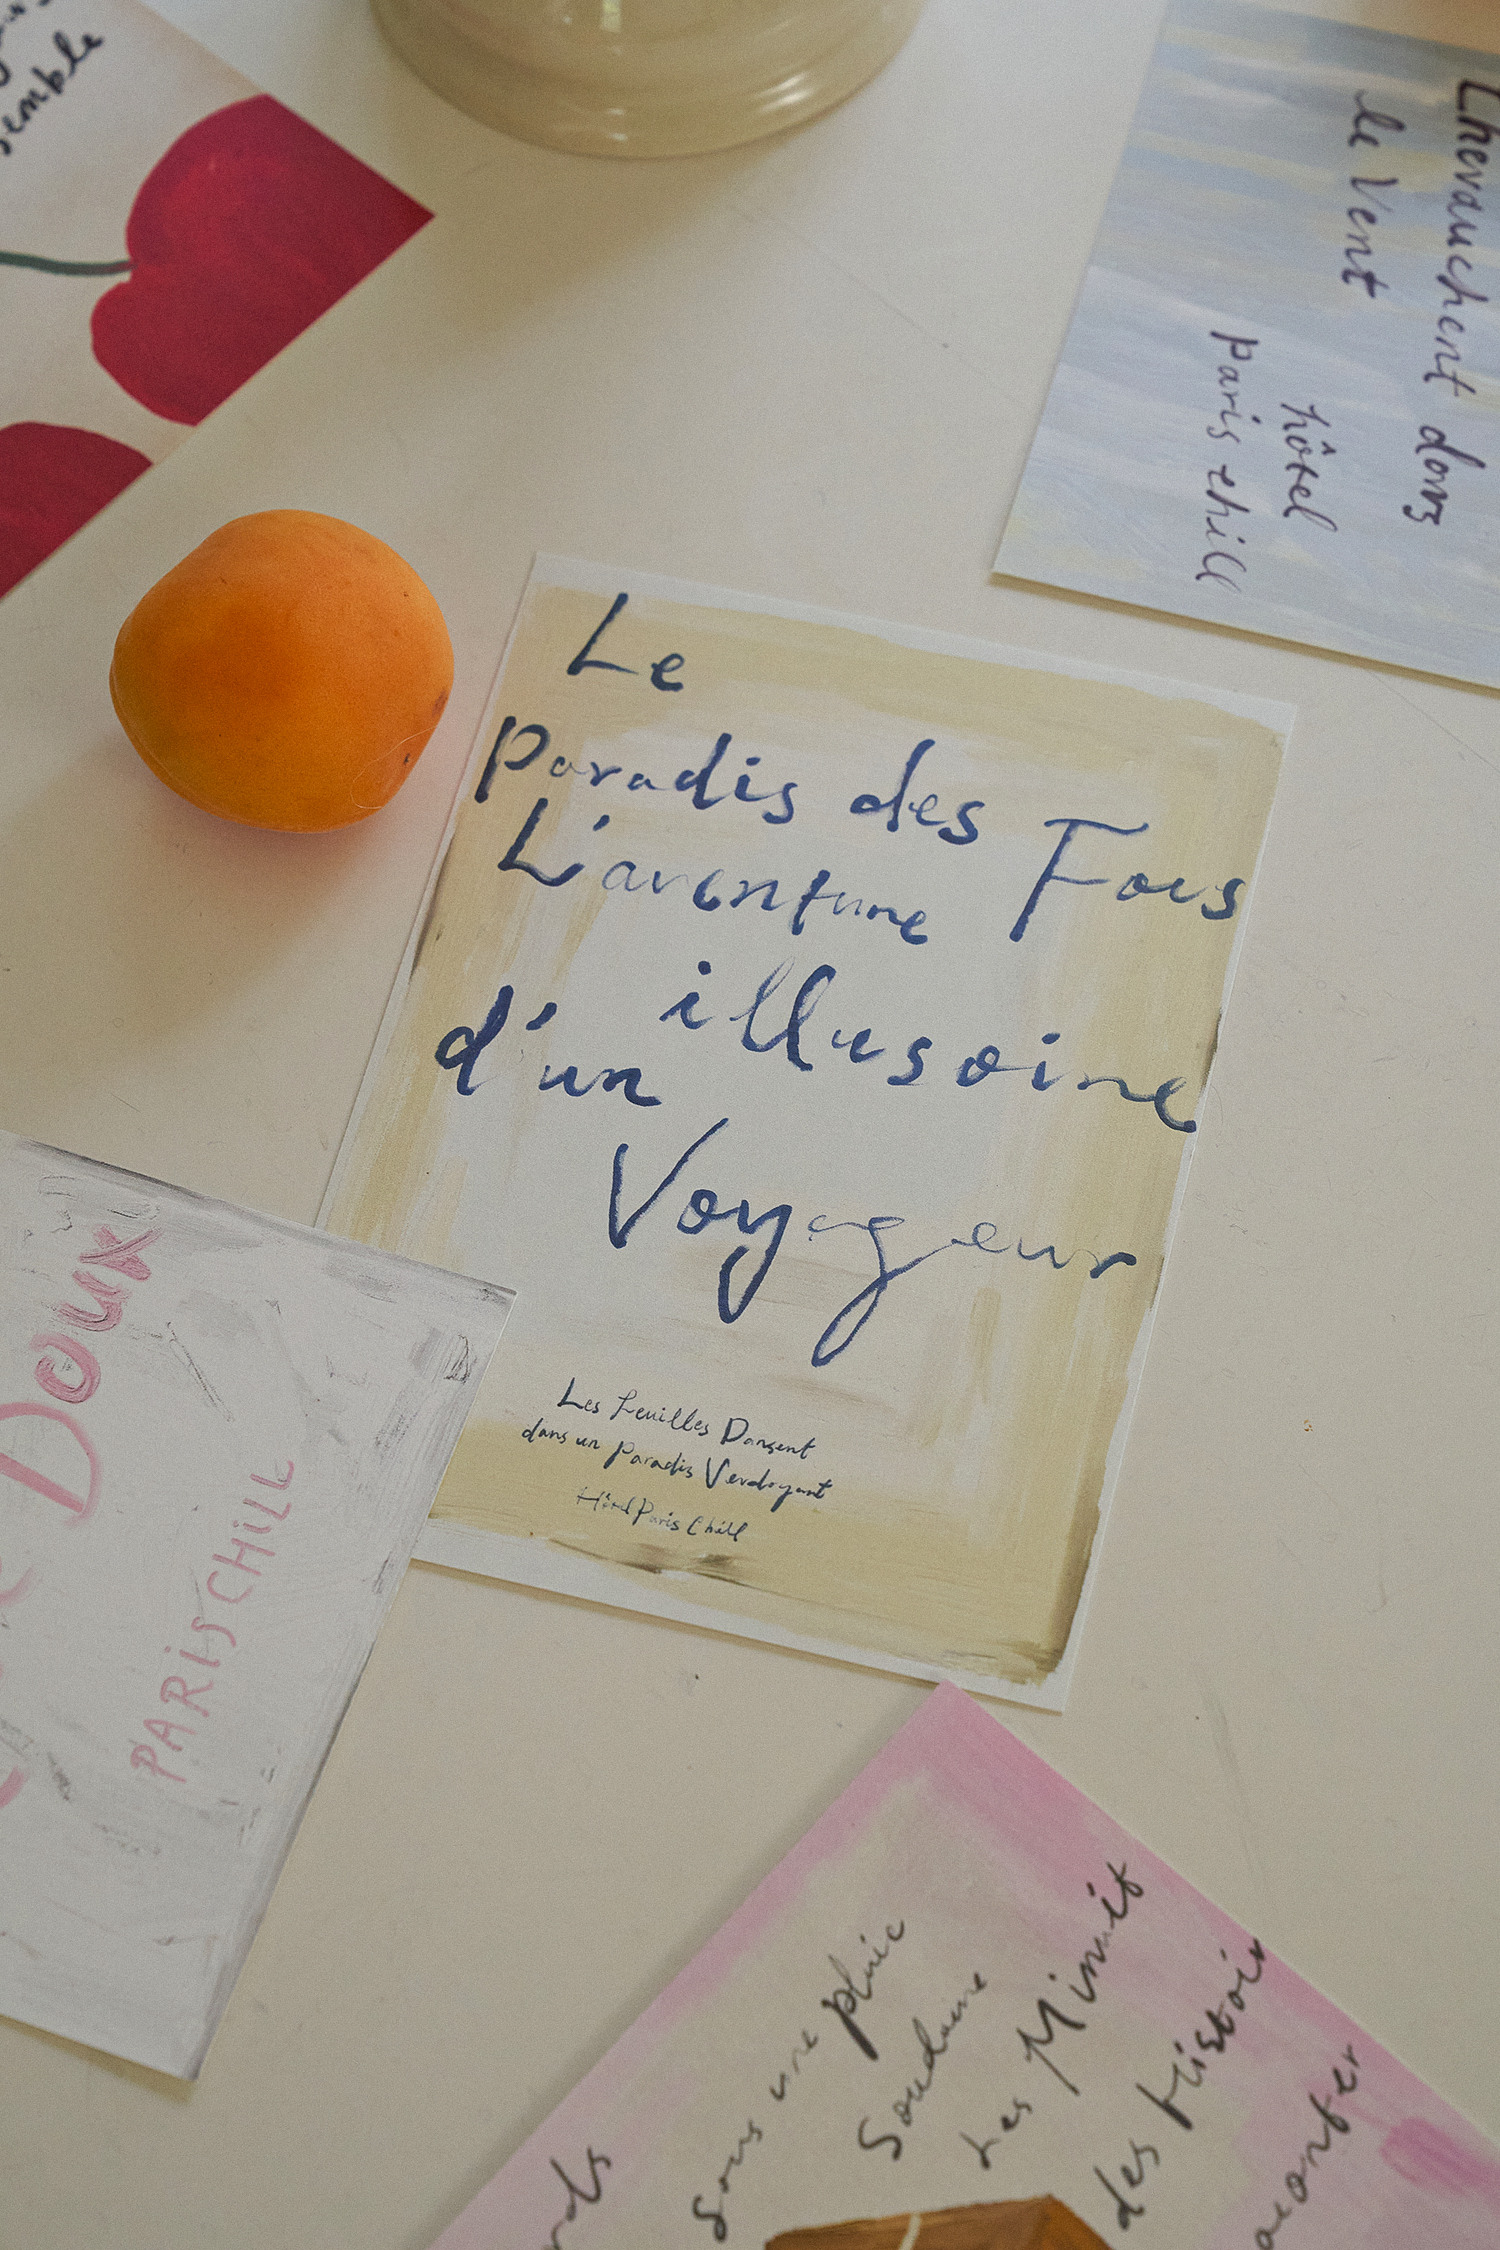 semble
Chevauchent dans
le Vent
hôtel
Paris chill
Le
Paradis des Fous
L'aventure
illusoire
d'un
Voyageur
Les Feuilles Dansent
dans un Paradis Verdoyant
Hôtel Paris Chill
Doux
PARIS CHILL
sous une pluie
Soudaine
Les Minuit
des Histoir
aconter